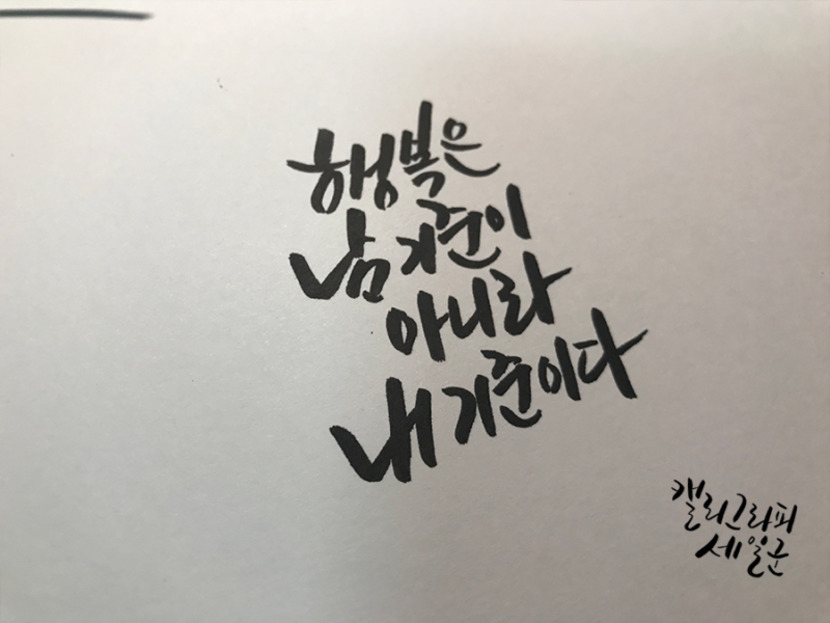 행복은
남 기준이
아니라
내 기준이다
캘리그라피
세일군